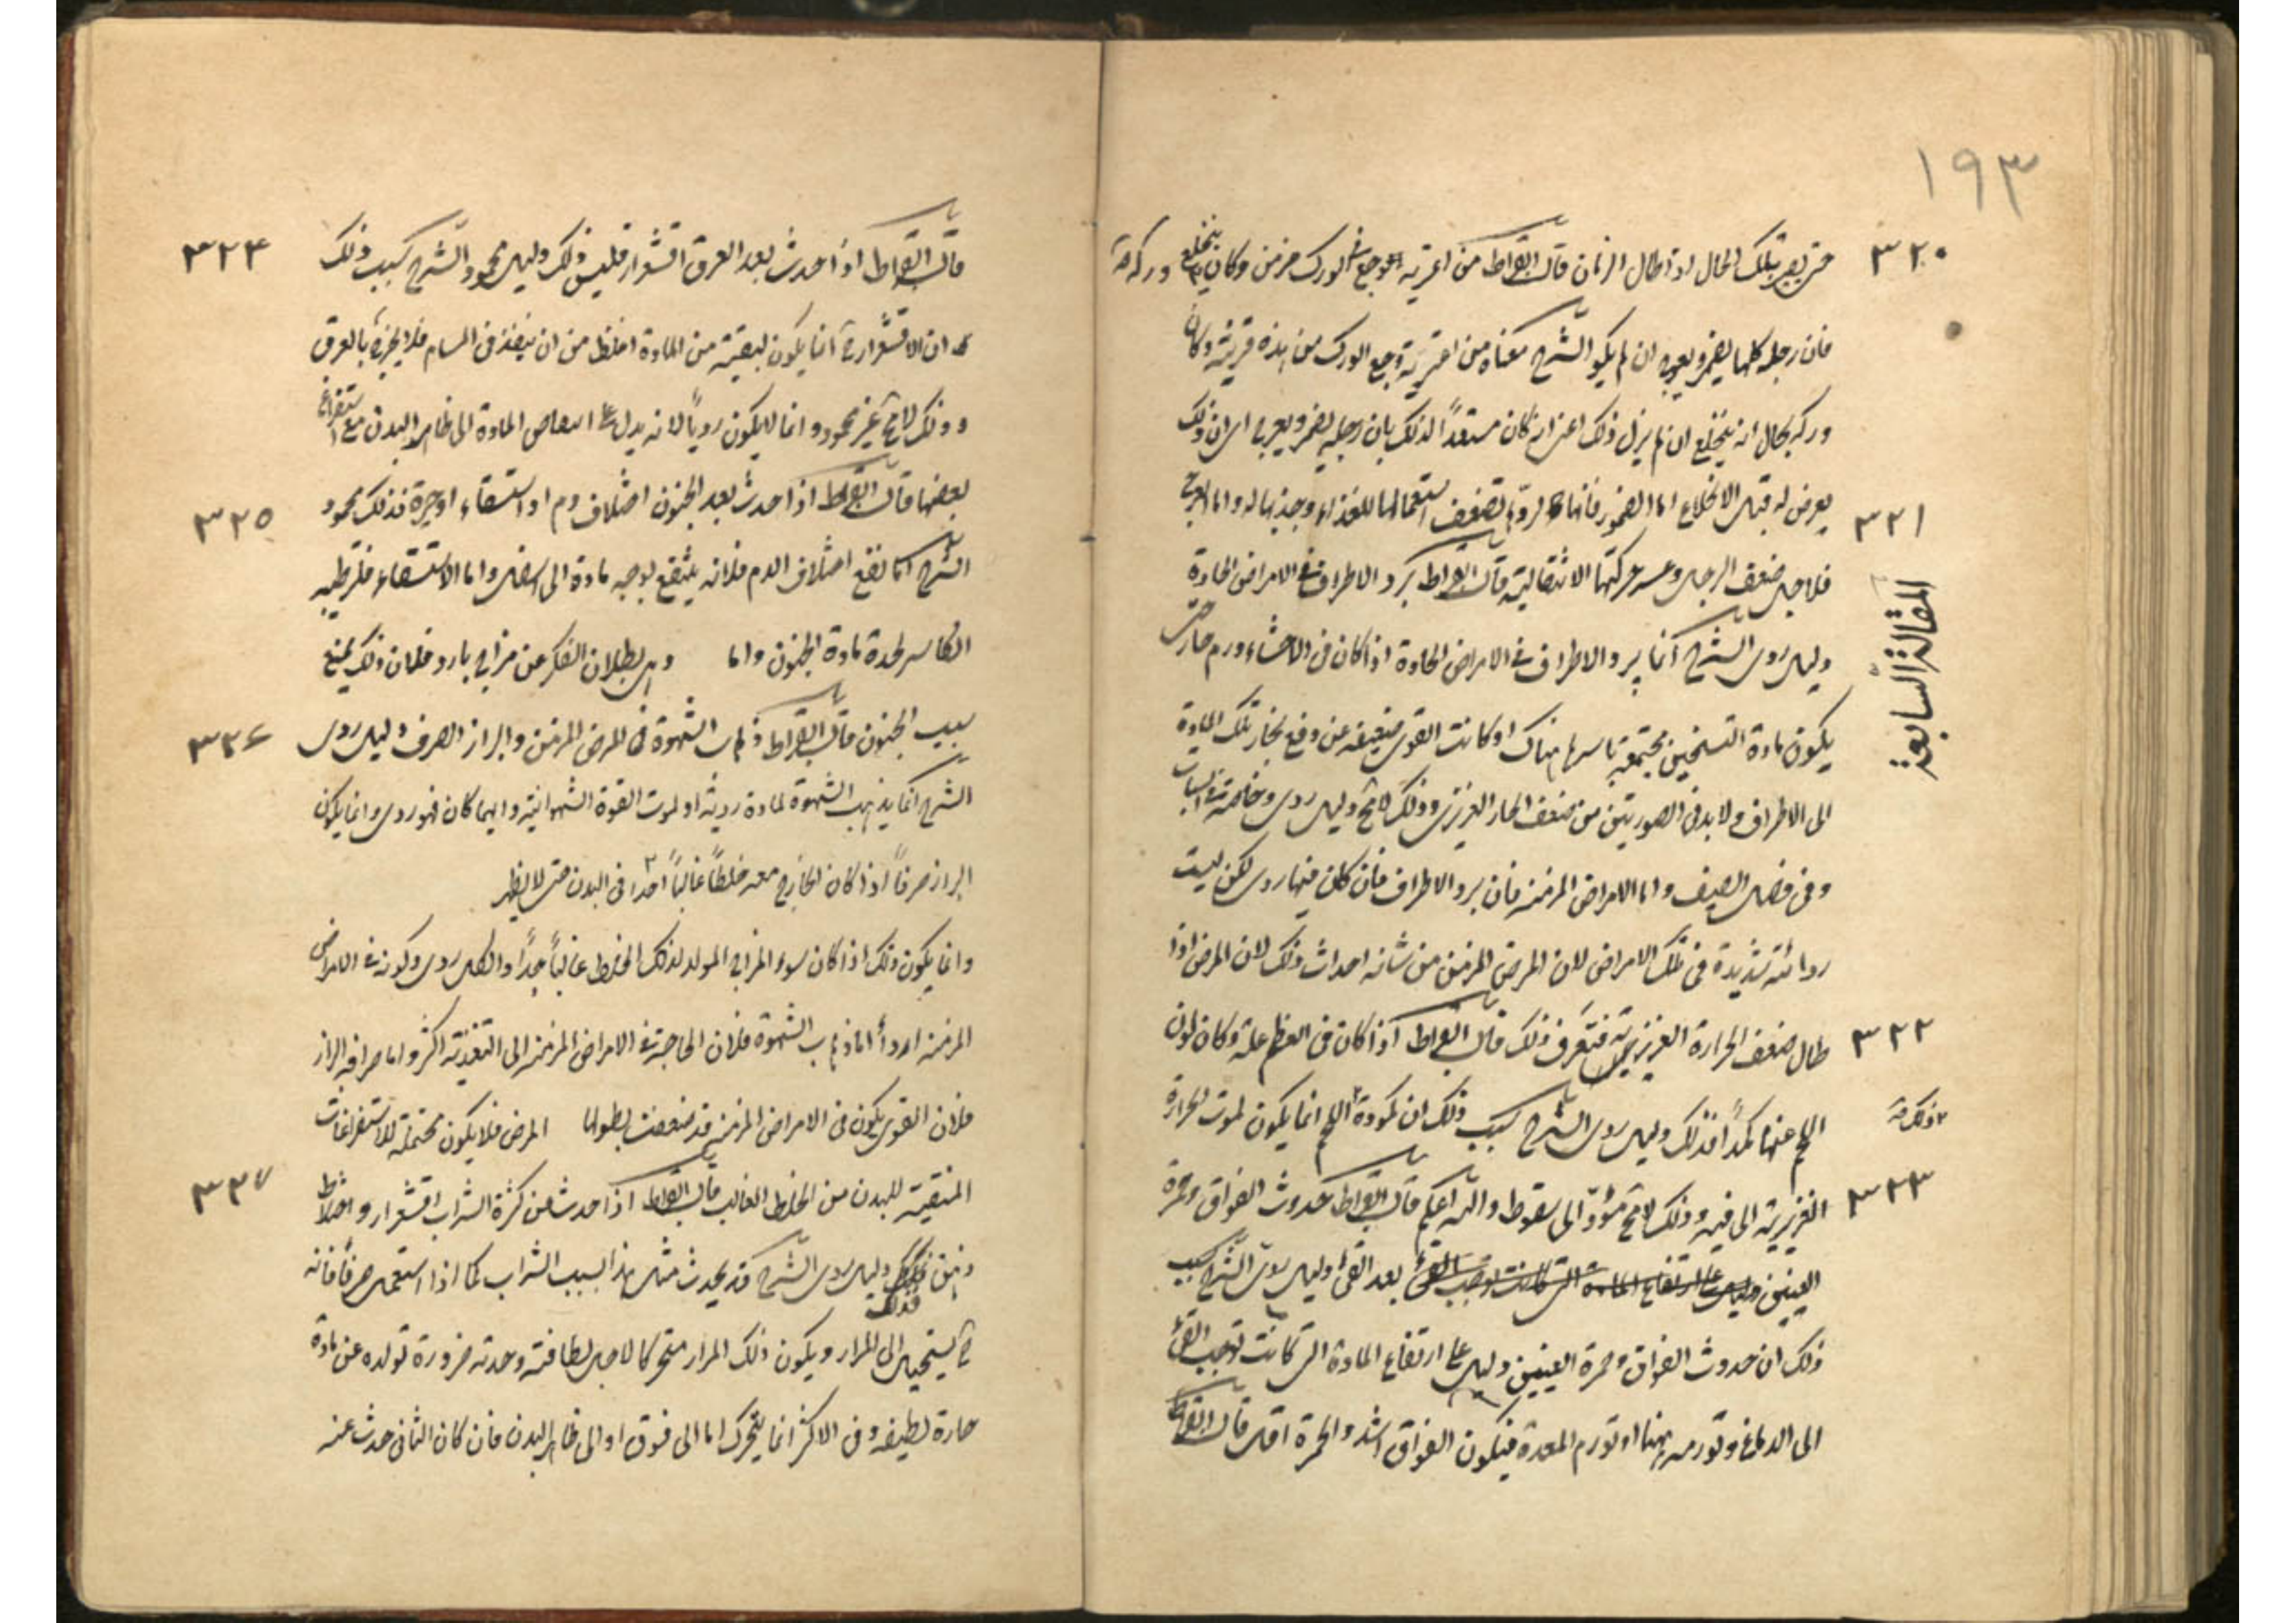 ١٩٣
٣٢٠
حتى يعرج تلك الحال اذا طال الزمان قال ابقراط من اعتريه وجع فى الورك مزمن وكان ينخلع وركه
فان رجله كلها يضمر ويعرج ان لم يكو الشرح معناه من اعتريه وجع الورك من هذه قريبة وكان
وركه بحال انه ينخلع ان لم يزل ذلك اعنى انه كان مستعداً لذلك بان رجله يضمر ويعرج اى ان ذلك
٣٢١
يعرض له قبل الانخلاع اما الضمور فانها لضعف استعمالها للغذاء وجذبها له واما العرج
المقالة السابعة
فلاجل ضعف الرجل وعسر حركتها الانتقالية قال ابقراط برد الاطراف فى الامراض الحادة
دليل ردى الشرح انما يبرد الاطراف فى الامراض الحادة اذا كان فى الاحشاء ورم حار حتى
يكون مادة التسخين مجتمعة باسرها هناك او كانت القوى ضعيفة عن دفع بخار تلك المادة
الى الاطراف ولا بد فى الصورتين من ضعف الحار الغريزى وذلك لا مح دليل ردى وخاصة فى الشباب
وفى فصل الصيف واما الامراض المزمنة فان برد الاطراف فان كان فيها ردى لكن ليست
ردائته شديدة فى تلك الامراض لان المرض المزمن من شانه احداث ذلك لان المرض اذا
٣٢٢
طال ضعف الحرارة الغريزية فتعرف ذلك قال ابقراط اذا كان فى العظم علة وكان لون
اللحم عنها كمداً فذلك دليل ردى الشرح سبب ذلك ان كمودة اللحم انما يكون لموت الحرارة
٣٢٣
الغريزية التى فيه وذلك لا مح مؤدّ الى سقوط والله اعلم قال ابقراط حدوث الفواق وحمرة
العينين دليل على ارتفاع المادة التى كانت توجب القئ بعد القئ دليل ردى الشرح سبب
ذلك ان حدوث الفواق وحمرة العينين دليل على ارتفاع المادة التى كانت توجب القئ
الى الدماغ وتورمه منها او تورم المعدة فيكون الفواق اشد والحمرة اقل قال ابقراط
٣٢٤
قال ابقراط اذا حدث بعد العرق اقشعرار فليس ذلك دليل محمود الشرح سبب ذلك
ان الاقشعرار انما يكون لبقية من المادة اغلظ من ان ينفذ فى المسام فلا يخرج بالعرق
وذلك لا مح غير محمود وانما لا يكون ردياً لانه يدل على المادة الى ظاهر البدن مع استفراغ
٣٢٥
بعضها قال ابقراط اذا حدث بعد الجنون اختلاف دم او استسقاء او حيرة فذلك محمود
الشرح انما نفع اختلاف الدم فلانه ينتفع بوجه مادة الى اسفل واما الاستسقاء فلترطيبه
الكاسر لحدة مادة الجنون واما وهى بطلان الفكر عن مزاج بارد فلان ذلك يمنع
٣٢٦
سبب الجنون قال ابقراط ذهاب الشهوة فى المرض المزمن والبراز الصرف دليل ردى
الشرح انما يذهب الشهوة لمادة ردية او لموت القوة الشهوانية وايهما كان فهو ردى وانما يكون
البراز صرفاً اذا كان الخارج معه خلطاً غالباً جدا فى البدن حتى لا يظهر
وانما يكون ذلك اذا كان سوء المزاج المولد لذلك الخلط غالباً جداً والكل ردى وكونه فى الامراض
المزمنة اردأ اما ذهاب الشهوة فلان الحاجة فى الامراض المزمنة الى التغذية اكثر واما صرافة البراز
فلان القوى يكون فى الامراض المزمنة قد ضعفت بطول المرض فلا يكون محتملة للاستفراغات
٣٢٧
المنقية للبدن من الخلط الغالب قال ابقراط اذا حدث من كثرة الشراب اقشعرار واختلاط
ذهن فذلك دليل ردى الشرح قد يحدث مثل هذا بسبب الشراب كما اذا استعمل صرفاً فانه
ح يستحيل الى المرار ويكون ذلك المرار متحركا لاجل لطافته وحدته ضرورة تولده عن مادة
حارة لطيفة وفى الاكثر انما يتحرك اما الى فوق او الى ظاهر البدن فان كان الثانى حدث عنه